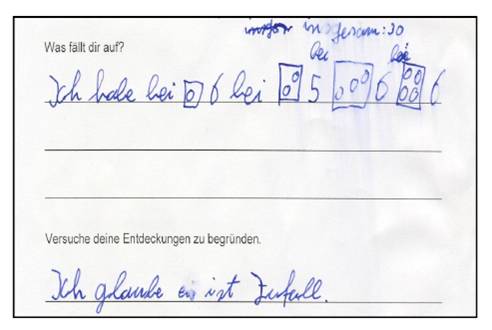 insgesam: 30
Was fällt dir auf?
bei bei
Ich habe bei 6 bei 5 6 6
Versuche deine Entdeckungen zu begründen.
Ich glaube es ist Zufall.